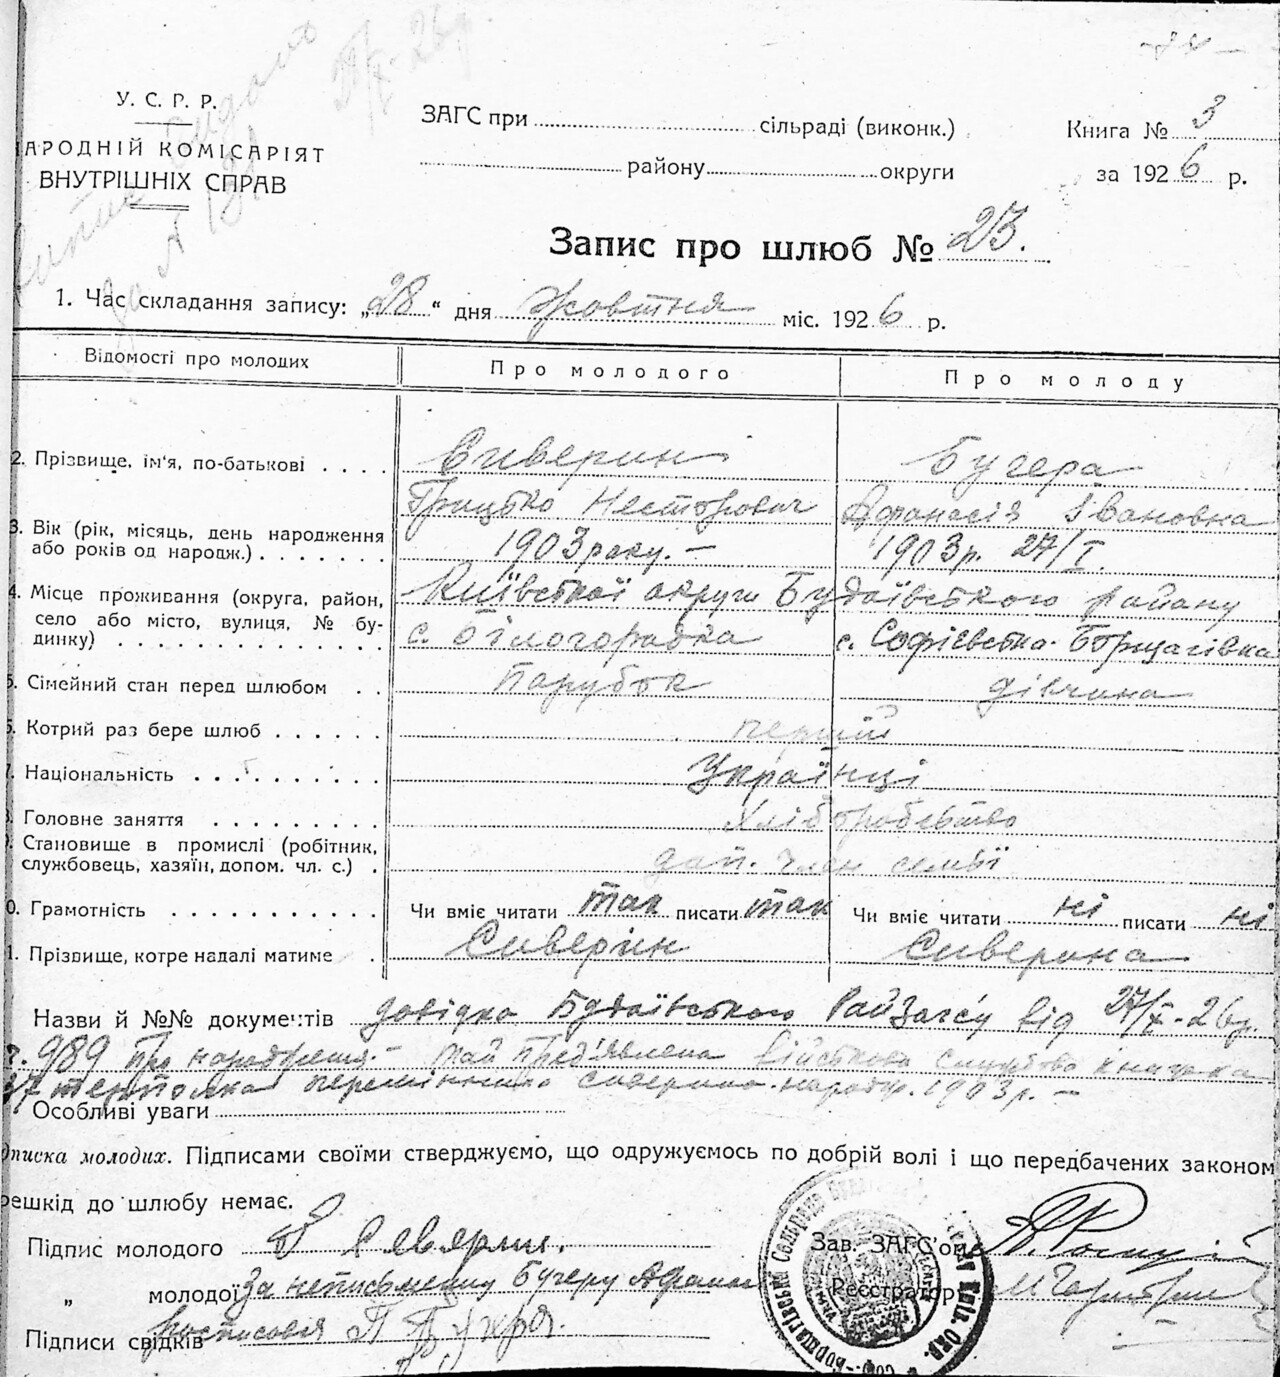 У. С. Р. Р.
АРОДНІЙ КОМІСАРІЯТ
ВНУТРІШНІХ СПРАВ
ЗАГС при сільраді (виконк.)
району округи
Книга № 3
за 1926 р.
Запис про шлюб № 23.
1. Час складання запису: „28“ дня Жовтня міс. 1926 р.
Відомості про молодих Про молодого Про молоду
2. Прізвище, ім'я, по-батькові Сиверин Бугера
Грицько Несторович Афанасія Івановна
3. Вік (рік, місяць, день народження
або років од народж.) 1903 року. – 1903 р. 27/I.
4. Місце проживання (округа, район, Київської округи Будаївського району
село або місто, вулиця, № бу-
динку) с. Білогородка с. Софієвська-Борщагівка
5. Сімейний стан перед шлюбом Парубок дівчина
6. Котрий раз бере шлюб перший
7. Національність Українці
Головне заняття хліборобство
Становище в промислі (робітник,
службовець, хазяїн, допом. чл. с.) доп. член семьї
0. Грамотність Чи вміє читати так писати так Чи вміє читати ні писати ні
1. Прізвище, котре надалі матиме Сиверин Сиверина
Назви й №№ документів довідка Будаївського РайЗагсу від 27/X-26р.
989 про народження. – пред'явлена військова службова книжка
Сиверина народж. 1903 р. –
Особливі уваги
дписка молодих. Підписами своїми стверджуємо, що одружуємось по добрій волі і що передбачених законом
решкід до шлюбу немає.
Підпис молодого Г Сіверин.
„ молодої За неписьменну Бугеру Афанас
Підписи свідків росписовся
Зав. ЗАГС'ом
Реєстратор